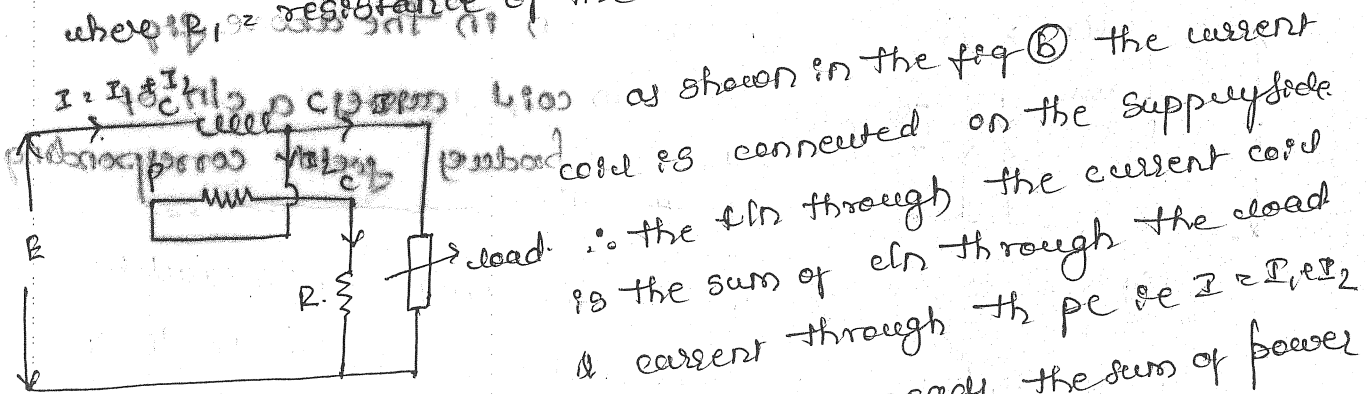 where R1 = resistance of the
as shown in the fig (B) the current
coil is connected on the supply side
∴ the through the current coil
is the sum of through the load
& current through th pc ie I = I1 + I2
the sum of power
E
R.
load.